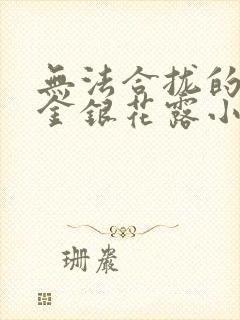 無法合拢的
金銀花露小
珊嚴